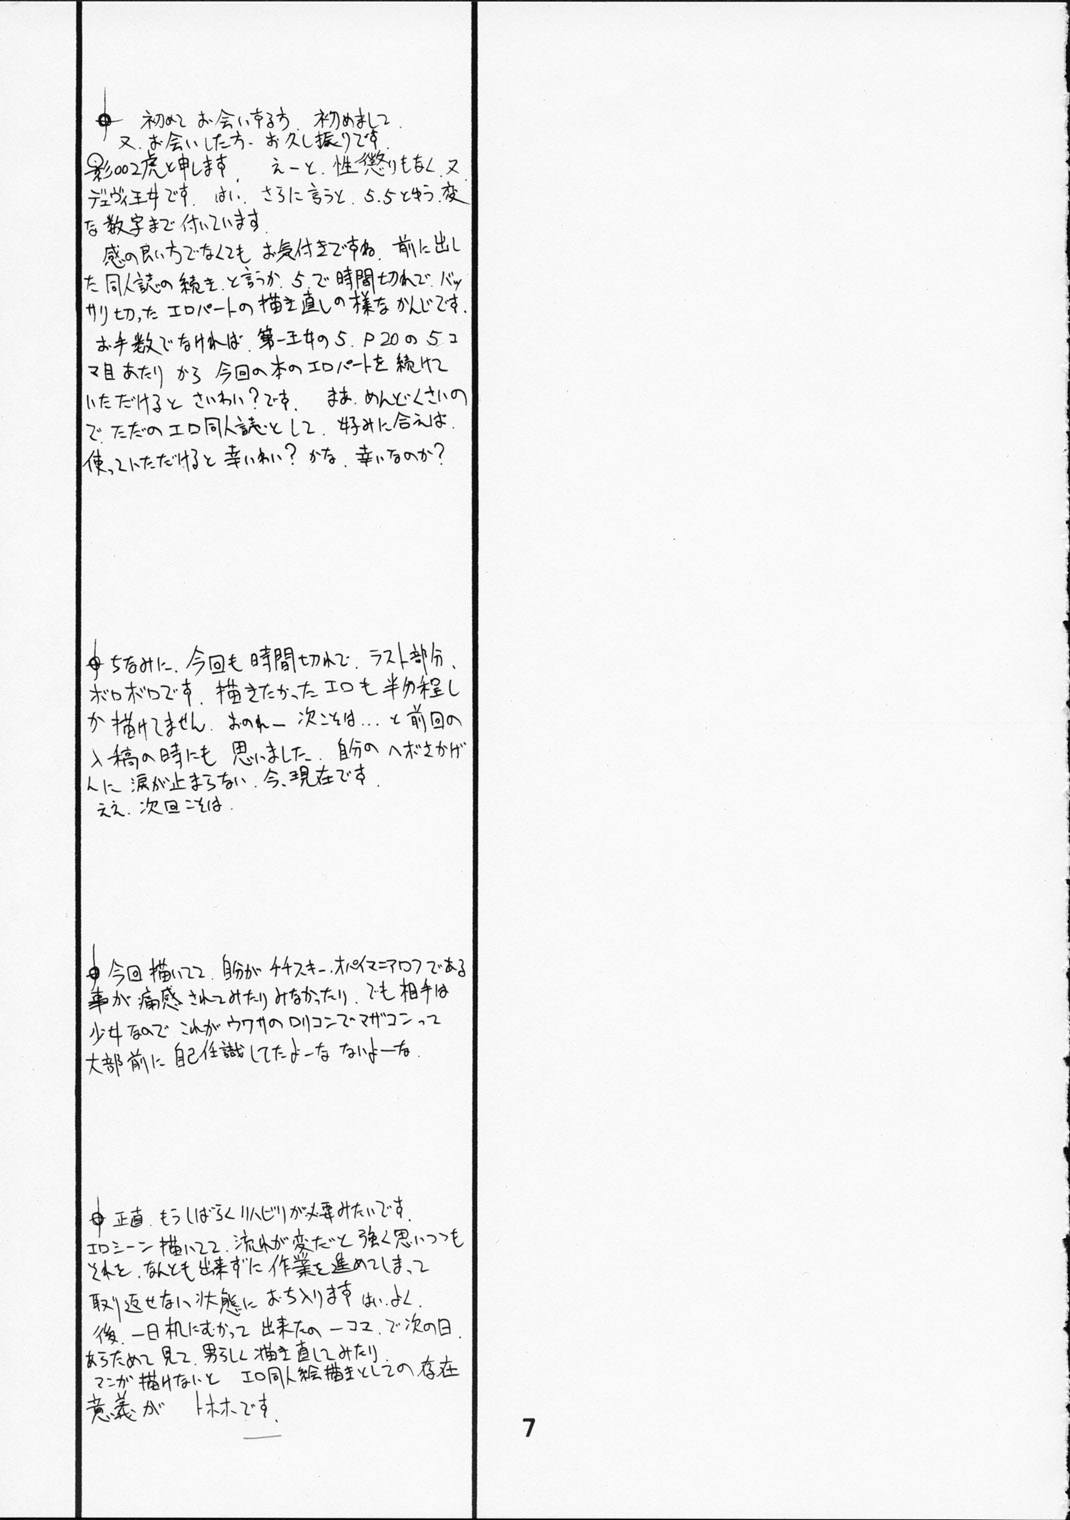 初めて お会いする方、初めまして、
又、お会いした方、お久し振りです。
影002虎と申します、 えーと、性懲りもなく、又、
デュヴィ王女です。はい、さらに言うと、5.5とゆう変
な数字まで付いています。
感の良い方でなくても お気付きですね、前に出し
た同人誌の続き、と言うか、5.で時間切れで、バッ
サリ切った エロパートの描き直しの様な かんじです。
お手数でなければ、第一王女の5. P20の5コ
マ目あたり から 今回の本のエロパートを 続けて
いただけると さいわい?です。 まあ、めんどくさいの
で、ただの エロ同人誌として、好みに合えば、
使っていただけると 幸いわい? かな、幸いなのか?
ちなみに、今回も 時間切れで、ラスト部分、
ボロボロです。描きたかった エロも 半分程し
か 描けてません、おのれー 次こそは... と前回の
入稿の時にも 思いました、自分の ヘボさかげ
んに 涙が止まらない、今、現在です。
ええ、次回こそは、
今回 描いてて、自分が チチスキー、オパイマニアロフである
事が 痛感されてみたり みなかったり、でも 相手は
少女なので これが ウワサの ロリコンで マザコンって
大部前に 自己 識してたよーな ないよーな。
正直、もうしばらく リハビリが必要みたいです。
エロシーン 描いてて、流れが変だと 強く思いつつも
それを、なんとも出来ずに 作業を 進めてしまって
取り返せない状態に おち入ります はい、よく、
後、一日机にむかって 出来たの一コマ、で次の日、
あらためて 見て、男らしく 描き直してみたり
マンガ描けないと エロ同人絵描きとしての 存在
意義が トホホ、です。
7